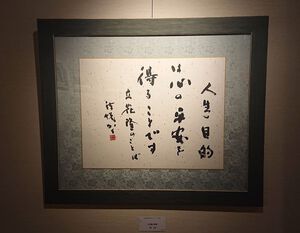 人生の目的
は心の平安を
得ることです
立花隆のことば